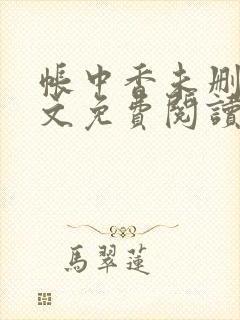 帳中香未删
文免費閱讀
馬翠蓮